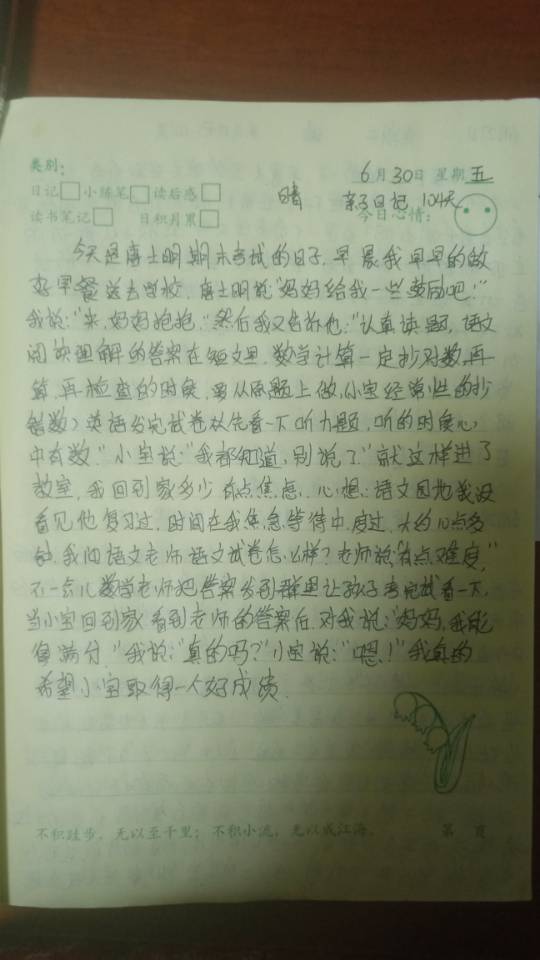 类别:
6月30日 星期五
日记 小练笔 读后感 晴 亲子日记 104天
读书笔记 日积月累 今日心情:
今天是唐士明期末考试的日子,早晨我早早的做
好早餐送去学校,唐士明说"妈妈给我一些鼓励吧!"
我说:"来,妈妈抱抱."然后我又告诉他:"认真读题,语文
阅读理解的答案在短文里,数学计算一定抄对数,再
算,再检查的时候,要从原题上做,(小宝经常性的抄
错数)英语发完试卷从先看一下听力题,听的时候心
中有数."小宝说:"我都知道,别说了."就这样进了
教室,我回到家多少有点焦虑,心想:语文因为我没
看见他复习过,时间在我焦急等待中度过,大约10点多
钟,我问语文老师语文试卷怎么样?老师说"有点难度,"
不一会儿数学老师把答案发到群里让孩子考完试看一下,
当小宝回到家看到老师的答案后,对我说:"妈妈,我能
得满分."我说:"真的吗?"小宝说:"嗯!"我真的
希望小宝取得一个好成绩.
不积跬步,无以至千里;不积小流,无以成江海。 第 页